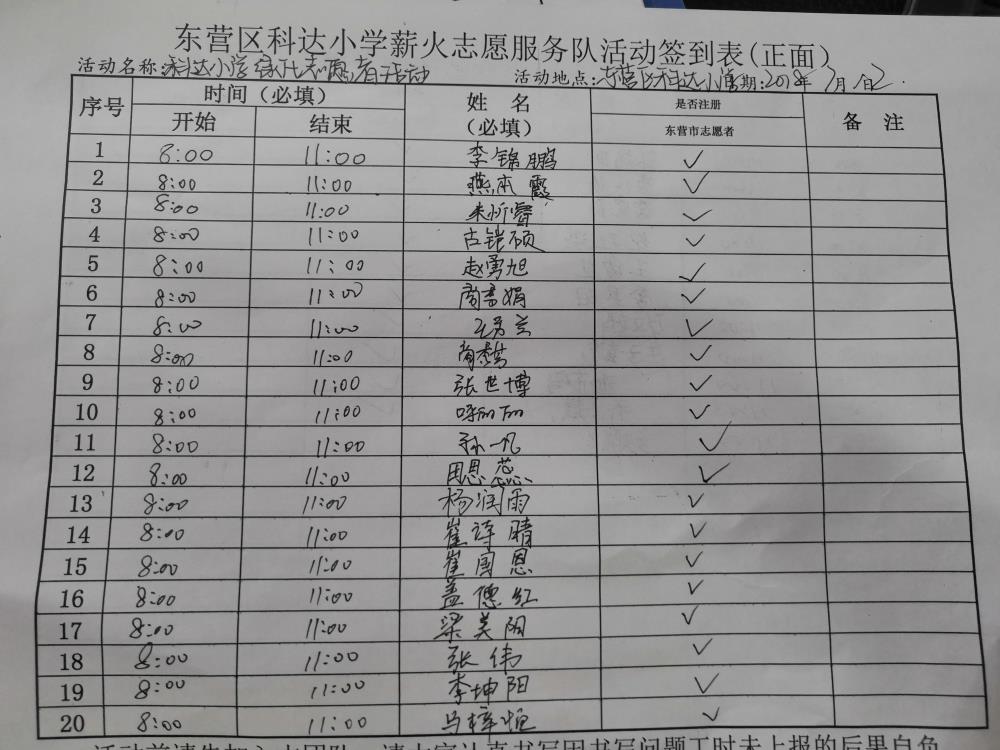 东营区科达小学薪火志愿服务队活动签到表(正面)
活动名称:科达小学 志愿者活动 活动地点:东营区科达小学 期:2018年7月1日
序号 时间（必填） 姓 名 是否注册 备 注
开始 结束 （必填） 东营市志愿者
1 8:00 11:00 李锦鹏 ✓
2 8:00 11:00 燕本霞 ✓
3 8:00 11:00 朱忻睿 ✓
4 8:00 11:00 古铠硕 ✓
5 8:00 11:00 赵勇旭 ✓
6 8:00 11:00 娟 ✓
7 8:00 11:00 王芳兰 ✓
8 8:00 11:00 ✓
9 8:00 11:00 张世博 ✓
10 8:00 11:00 ✓
11 8:00 11:00 孙一凡 ✓
12 8:00 11:00 周恩蕊 ✓
13 8:00 11:00 杨润雨 ✓
14 8:00 11:00 崔诗晴 ✓
15 8:00 11:00 崔闰恩 ✓
16 8:00 11:00 盖德红 ✓
17 8:00 11:00 梁美阳 ✓
18 8:00 11:00 张伟 ✓
19 8:00 11:00 李坤阳 ✓
20 8:00 11:00 马梓恒 ✓